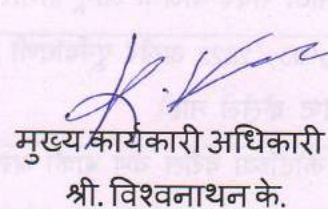 मुख्य कार्यकारी अधिकारी
श्री. विश्वनाथन के.